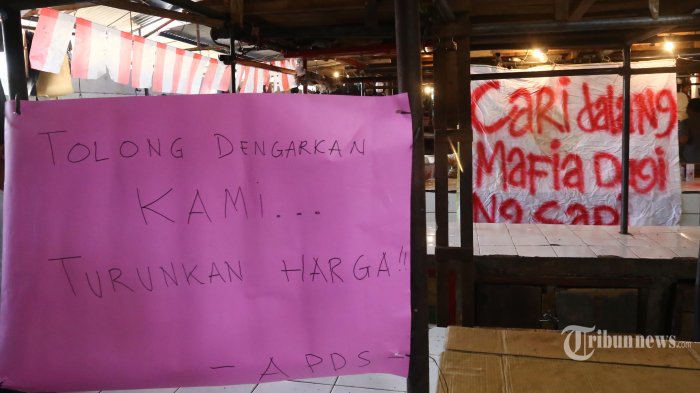 TOLONG DENGARKAN
KAMI...
TURUNKAN HARGA!!
- APDS -
Cari dalang
Mafia Dagi
ng sapi
Tribunnews.com